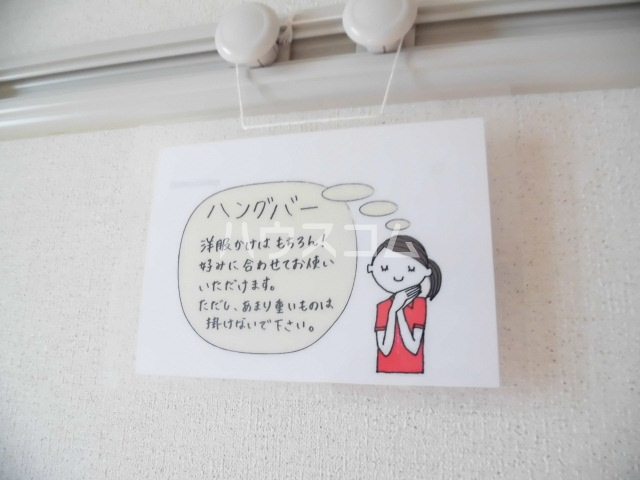 ハングバー
洋服かけは もちろん!
好みに合わせてお使い
いただけます。
ただし、あまり重いものは
掛けないで下さい。
ハウスコム